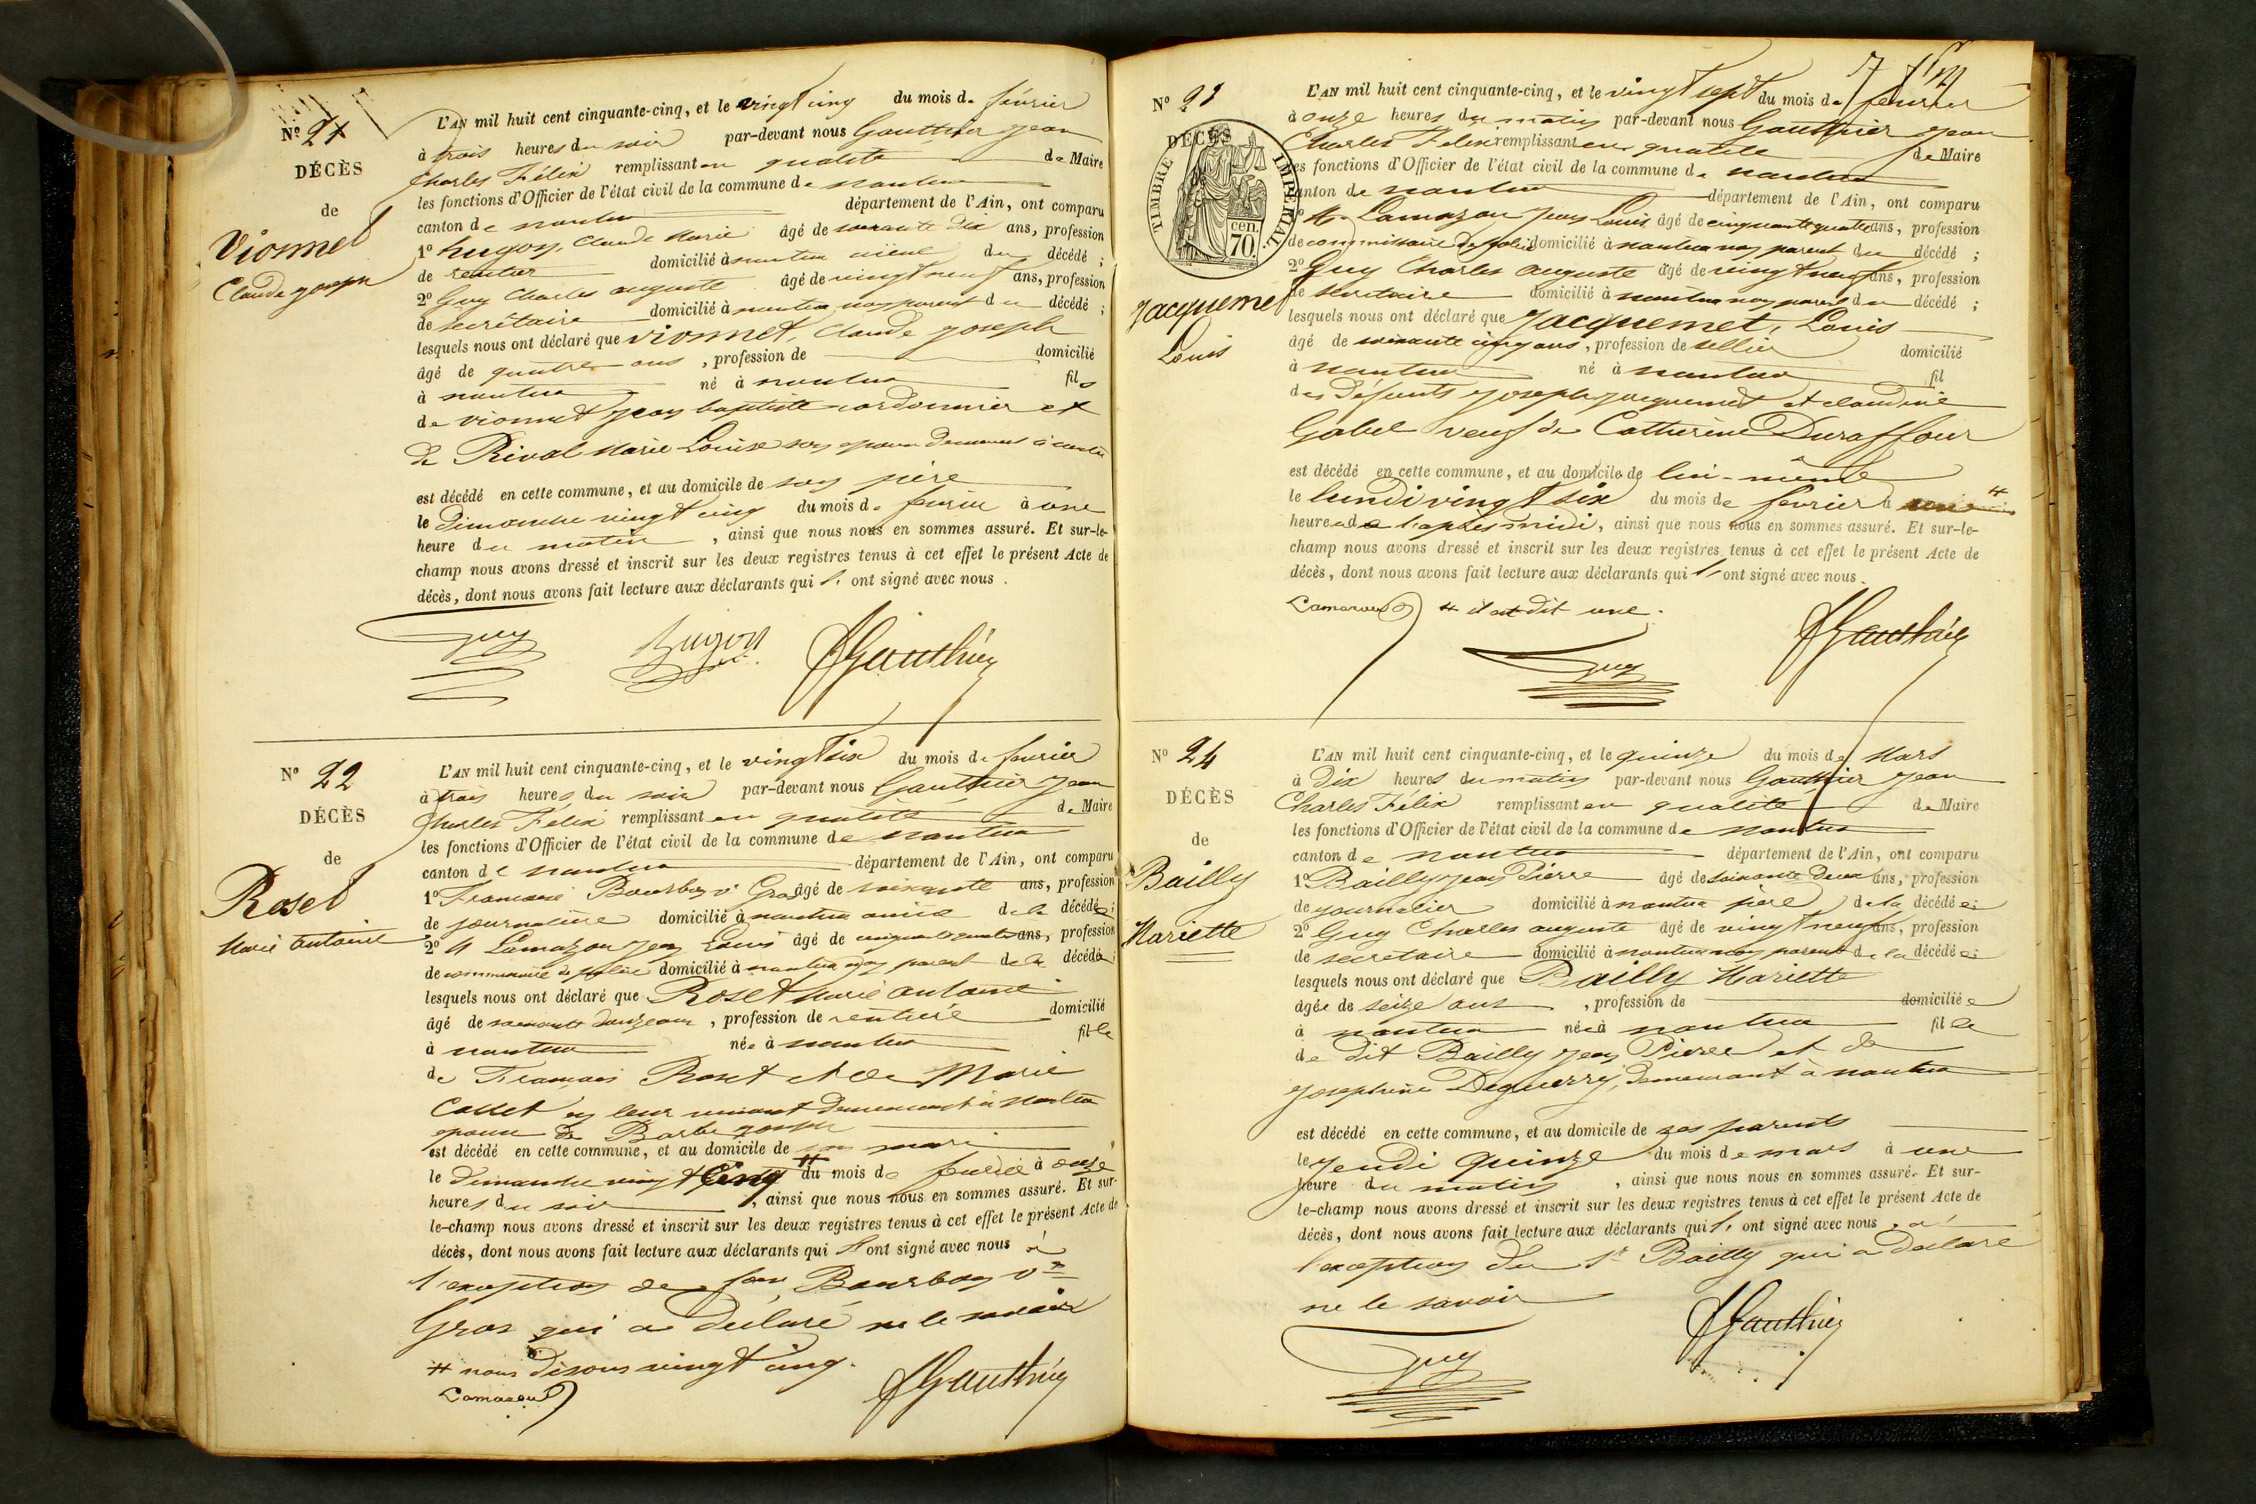 N° 21
DÉCÈS
de
Vionnet
Claude joseph
L'AN mil huit cent cinquante-cinq, et le vingt cinq du mois de février
à trois heures du soir par-devant nous Gauthier Jean
Charles Félix remplissant en qualité de Maire
les fonctions d'Officier de l'état civil de la commune de nantua
canton de nantua département de l'Ain, ont comparu
1° hugon, Claude Marie âgé de soixante dix ans, profession
de rentier domicilié à nantua du décédé ;
2° Guy Charles auguste âgé de vingt neuf ans, profession
de secrétaire domicilié à nantua non parent du décédé ;
lesquels nous ont déclaré que vionnet, Claude joseph
âgé de quatre ans , profession de domicilié
à nantua né à nantua fils
de vionnet jean baptiste cordonnier et
de Rival Marie Louise son épouse demeurant à nantua
est décédé en cette commune, et au domicile de son père
le dimanche vingt cinq du mois de février à une
heure du matin , ainsi que nous nous en sommes assuré. Et sur-le-
champ nous avons dressé et inscrit sur les deux registres tenus à cet effet le présent Acte de
décès, dont nous avons fait lecture aux déclarants qui l' ont signé avec nous .
Guy hugon JGauthier
N° 22
DÉCÈS
de
Roset
Marie antoine
L'AN mil huit cent cinquante-cinq, et le vingt six du mois de février
à trois heures du soir par-devant nous Gauthier Jean
Charles Félix remplissant en qualité de Maire
les fonctions d'Officier de l'état civil de la commune de nantua
canton de nantua département de l'Ain, ont comparu
1° Françoise Bourbon Ve Gros âgé de soixante ans, profession
de journalière domicilié à nantua amie de la décédée ;
2° M Lamazou Jean Louis âgé de cinquante quatre ans, profession
de commissaire de police domicilié à nantua non parent de la décédée ;
lesquels nous ont déclaré que Roset Marie antoine
âgé de soixante douze ans , profession de rentière domicilié
à nantua née à nantua fille
de François Roset et de Marie
Collet en leur vivant demeurant à Nantua
épouse de Barbe joseph
est décédé en cette commune, et au domicile de son mari
le dimanche vingt cinq # du mois de février à onze
heures du soir , ainsi que nous nous en sommes assuré. Et sur-
le-champ nous avons dressé et inscrit sur les deux registres tenus à cet effet le présent Acte de
décès, dont nous avons fait lecture aux déclarants qui l' ont signé avec nous à
l'exception de fse Bourbon Ve
Gros qui a déclaré ne le savoir
# nous disons vingt cinq.
Lamazou JGauthier
N° 23
DÉCÈS
TIMBRE IMPÉRIAL
cen.
70.
Jacquemet
Louis
L'AN mil huit cent cinquante-cinq, et le vingt sept du mois de février
à onze heures du matin par-devant nous Gauthier Jean
Charles Félix remplissant en qualité de Maire
les fonctions d'Officier de l'état civil de la commune de nantua
canton de nantua département de l'Ain, ont comparu
M. Lamazou Jean Louis âgé de cinquante quatre ans, profession
de commissaire de police domicilié à nantua non parent du décédé ;
2° Guy Charles auguste âgé de vingt neuf ans, profession
de secrétaire domicilié à nantua non parent du décédé ;
lesquels nous ont déclaré que Jacquemet, Louis
âgé de soixante cinq ans , profession de sellier domicilié
à nantua né à nantua fil
des défunts joseph jacquemet et claudine
Gabel veuf de Catherine Duraffour
est décédé en cette commune, et au domicile de lui-même
le lundi vingt six du mois de février à #
heure de l'après midi, ainsi que nous nous en sommes assuré. Et sur-le-
champ nous avons dressé et inscrit sur les deux registres tenus à cet effet le présent Acte de
décès, dont nous avons fait lecture aux déclarants qui l' ont signé avec nous .
Lamazou # il est dit une.
Guy JGauthier
N° 24
DÉCÈS
de
Bailly
Mariette
L'AN mil huit cent cinquante-cinq, et le quinze du mois de Mars
à dix heures du matin par-devant nous Gauthier Jean
Charles Félix remplissant en qualité de Maire
les fonctions d'Officier de l'état civil de la commune de nantua
canton de nantua département de l'Ain, ont comparu
1° Bailly jean Pierre âgé de soixante deux ans, profession
de journalier domicilié à nantua père de la décédée ;
2° Guy Charles auguste âgé de vingt neuf ans, profession
de secrétaire domicilié à nantua non parent de la décédée ;
lesquels nous ont déclaré que Bailly Mariette
âgée de seize ans , profession de domiciliée
à nantua née à nantua fille
de dit Bailly jean Pierre et de
josephine Deguerry, demeurant à nantua
est décédé en cette commune, et au domicile de ses parents
le jeudi quinze du mois de mars à une
heure du matin , ainsi que nous nous en sommes assuré. Et sur-
le-champ nous avons dressé et inscrit sur les deux registres tenus à cet effet le présent Acte de
décès, dont nous avons fait lecture aux déclarants qui l' ont signé avec nous . à
l'exception du Sr Bailly qui a déclaré
ne le savoir
Guy JGauthier